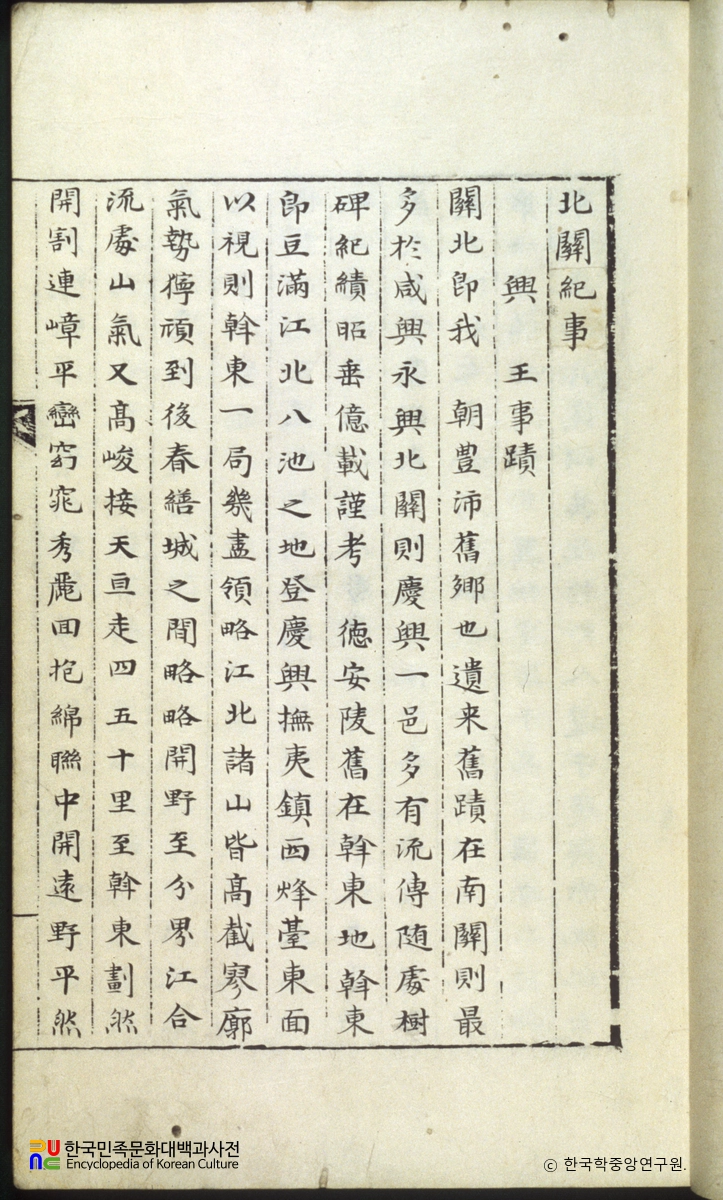 北關紀事
興 王事蹟
關北卽我 朝豊沛舊鄉也遺来舊蹟在南關則最
多於咸興永興北關則慶興一邑多有流傳随處樹
碑紀績昭垂億載謹考 德安陵舊在斡東地斡東
卽豆滿江北八池之地登慶興撫夷鎮西烽臺東面
以視則斡東一局幾盡領略江北諸山皆高截寥廓
氣勢獰頑到後春繕城之間略略開野至分界江合
流處山氣又高峻接天亘走四五十里至斡東劃然
開割連嶂平巒窈窕秀麗回抱綿聯中開遠野平然
한국민족문화대백과사전
Encyclopedia of Korean Culture
ⓒ 한국학중앙연구원.